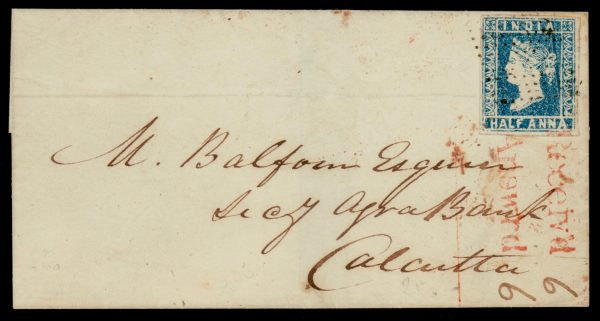 INDIA
HALF ANNA
M. Balfour Esquire
Secy Agra Bank
Calcutta
Receiv'd
Answrd
6
6